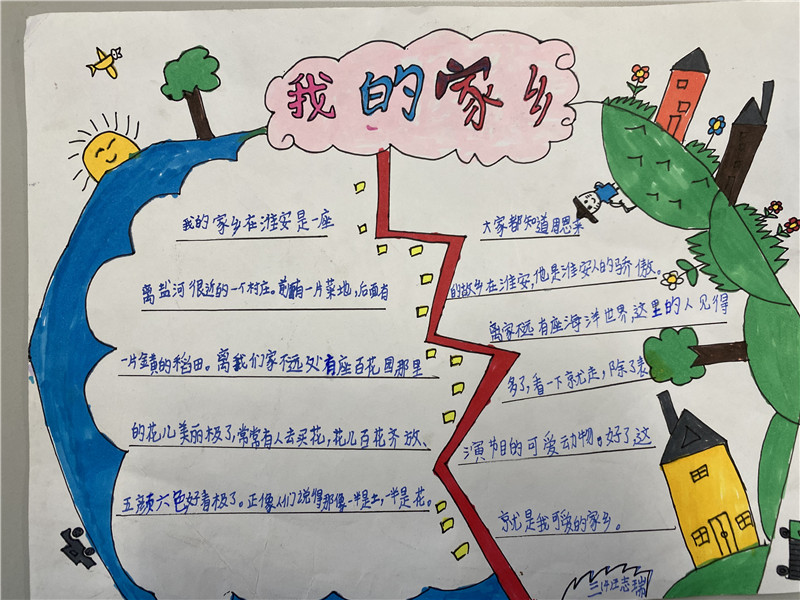 我的家乡
我的家乡在淮安是一座
离盐河很近的一个村庄。前有一片菜地,后面有
一片金黄的稻田。离我们家不远处有座百花园那里
的花儿美丽极了,常常有人去买花,花儿百花齐放、
五颜六色好看极了。正像人们说得那像一半是土,一半是花。
大家都知道周恩来
的故乡在淮安,他是淮安人的骄傲。
离家不远有座海洋世界,这里的人见得
多了,看一下京尤走,除了表
演节目的可爱动物。好了,这
京尤是我可爱的家乡。
三